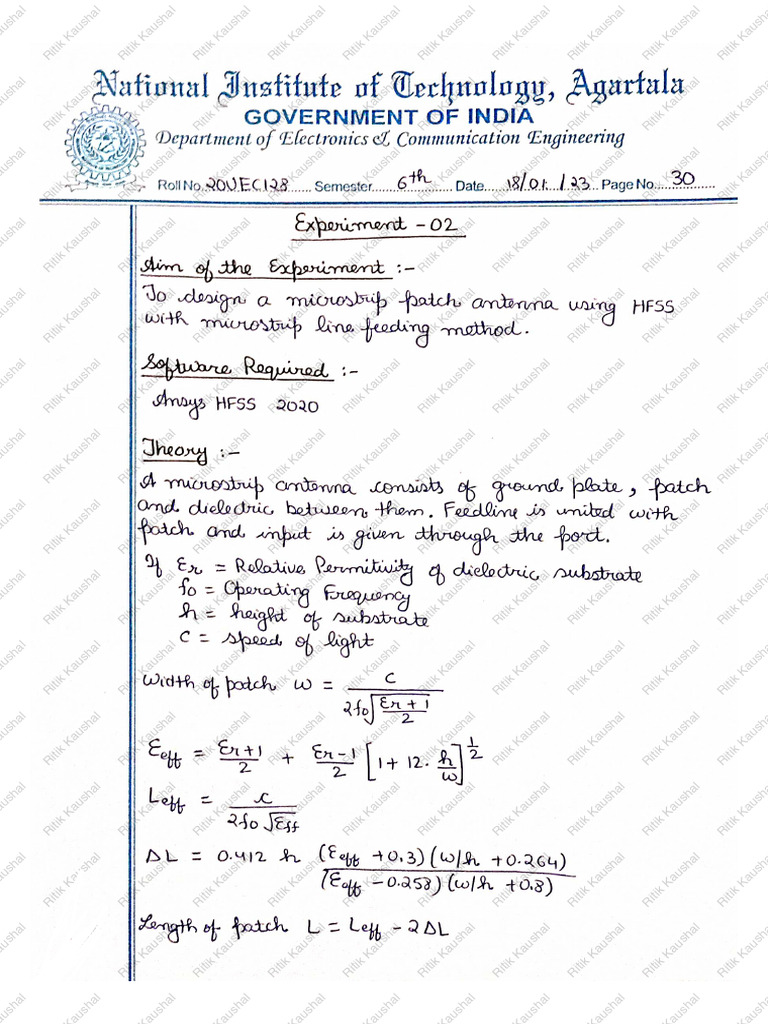 National Institute of Technology, Agartala
GOVERNMENT OF INDIA
Department of Electronics & Communication Engineering
Roll No. 20UEC128 Semester 6th Date 18/01/23 Page No. 30
Experiment - 02
Aim of the Experiment :-
To design a microstrip patch antenna using HFSS
with microstrip line feeding method.
Software Required :-
Ansys HFSS 2020
Theory :-
A microstrip antenna consists of ground plate, patch
and dielectric between them. Feedline is united with
patch and input is given through the port.
If Er = Relative Permitivity of dielectric substrate
fo = Operating Frequency
h = height of substrate
c = speed of light
Width of patch w = c / 2fo√((Er + 1)/2)
Eeff = (Er+1)/2 + (Er-1)/2 [1 + 12. h/w]^1/2
Leff = c / 2fo √Eff
ΔL = 0.412 h (Eeff + 0.3) (w/h + 0.264) / (Eeff - 0.258) (w/h + 0.8)
Length of patch L = Leff - 2ΔL
Ritik Kaushal